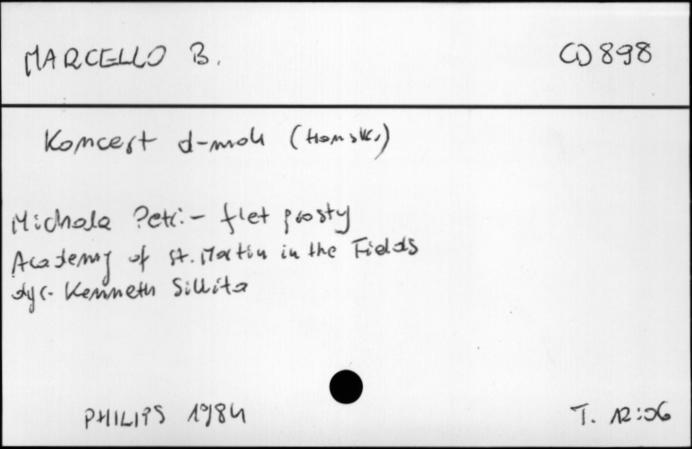 MARCELLO B.
CD 898
Koncert d-moll (transkr.)
Michala Petri - flet prosty
Academy of St. Martin in the Fields
dyr. Kenneth Sillito
PHILIPS 1984
T. 12:06